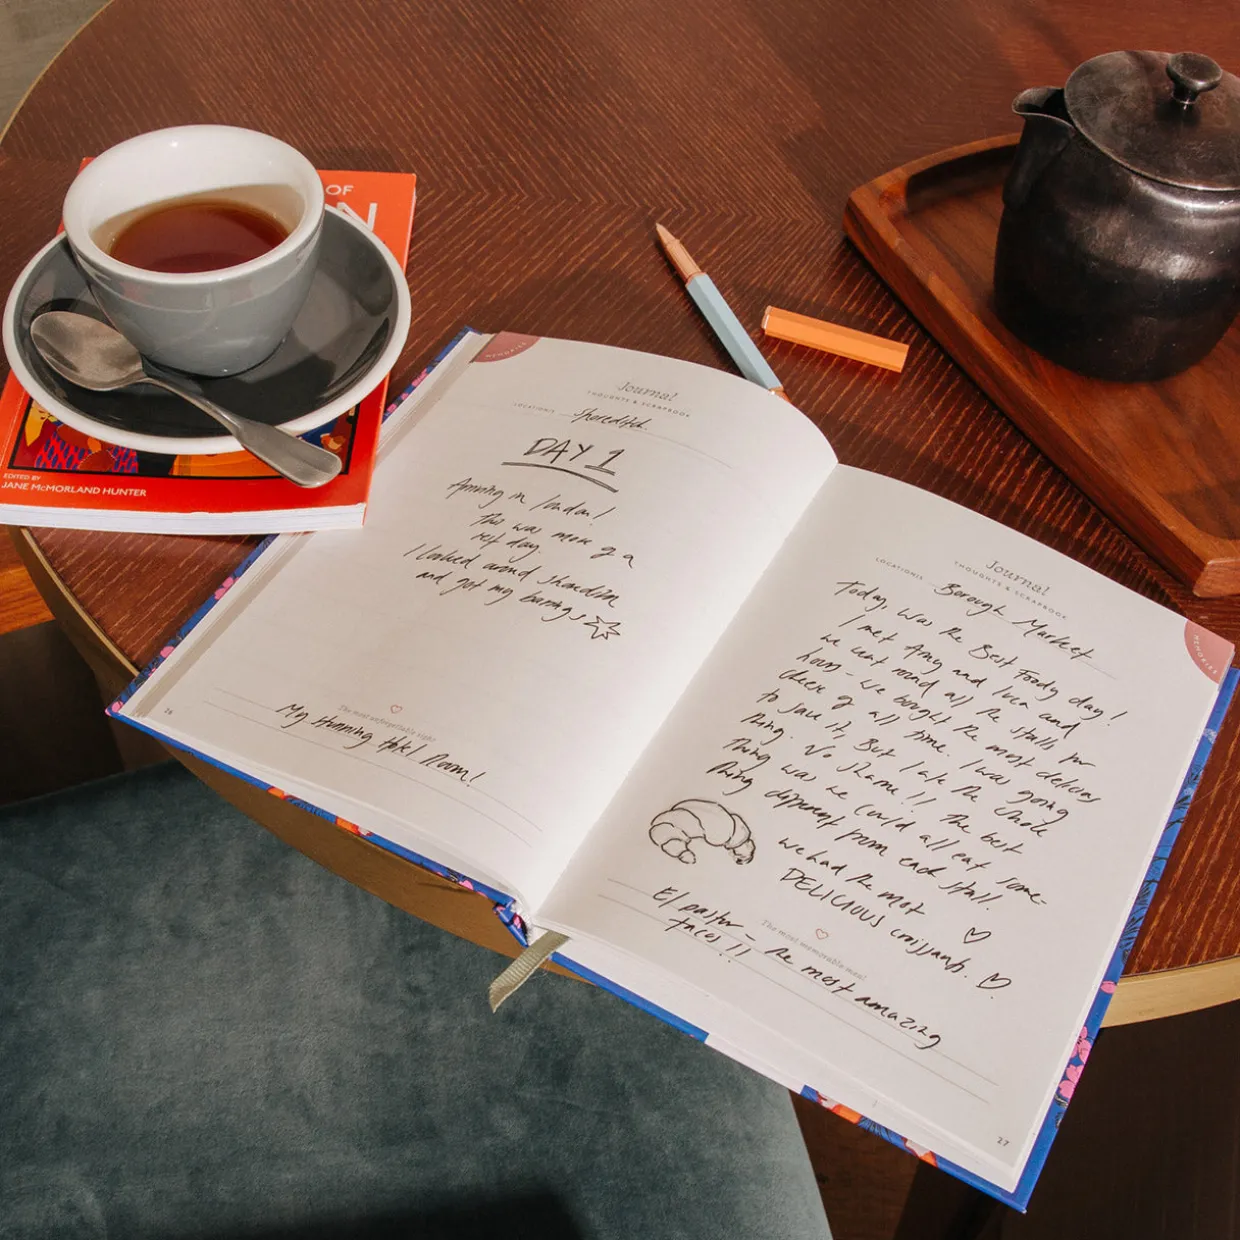 OF
N
EDITED BY
JANE McMORLAND HUNTER
MEMORIES
Journal
THOUGHTS & SCRAPBOOK
LOCATION(S) Shoreditch.
DAY 1
Arriving in London!
This was more of a
rest day.
I looked around shoreditch
and got my barings
The most unforgettable sight
My stunning Hotel Room!
26
MEMORIES
Journal
THOUGHTS & SCRAPBOOK
LOCATION(S) Borough Market
Today, was the Best Foody day!
I met Amy and Luca and
we went round all the stalls for
hours - we bought the most delicious
cheese of all time. I was going
to save it, But I ate the whole
thing. No shame!! The best
thing was we could all eat some-
thing different from each stall.
we had the most
DELICIOUS croissants.
The most memorable meal
El pastor - the most amazing
tacos!!
27